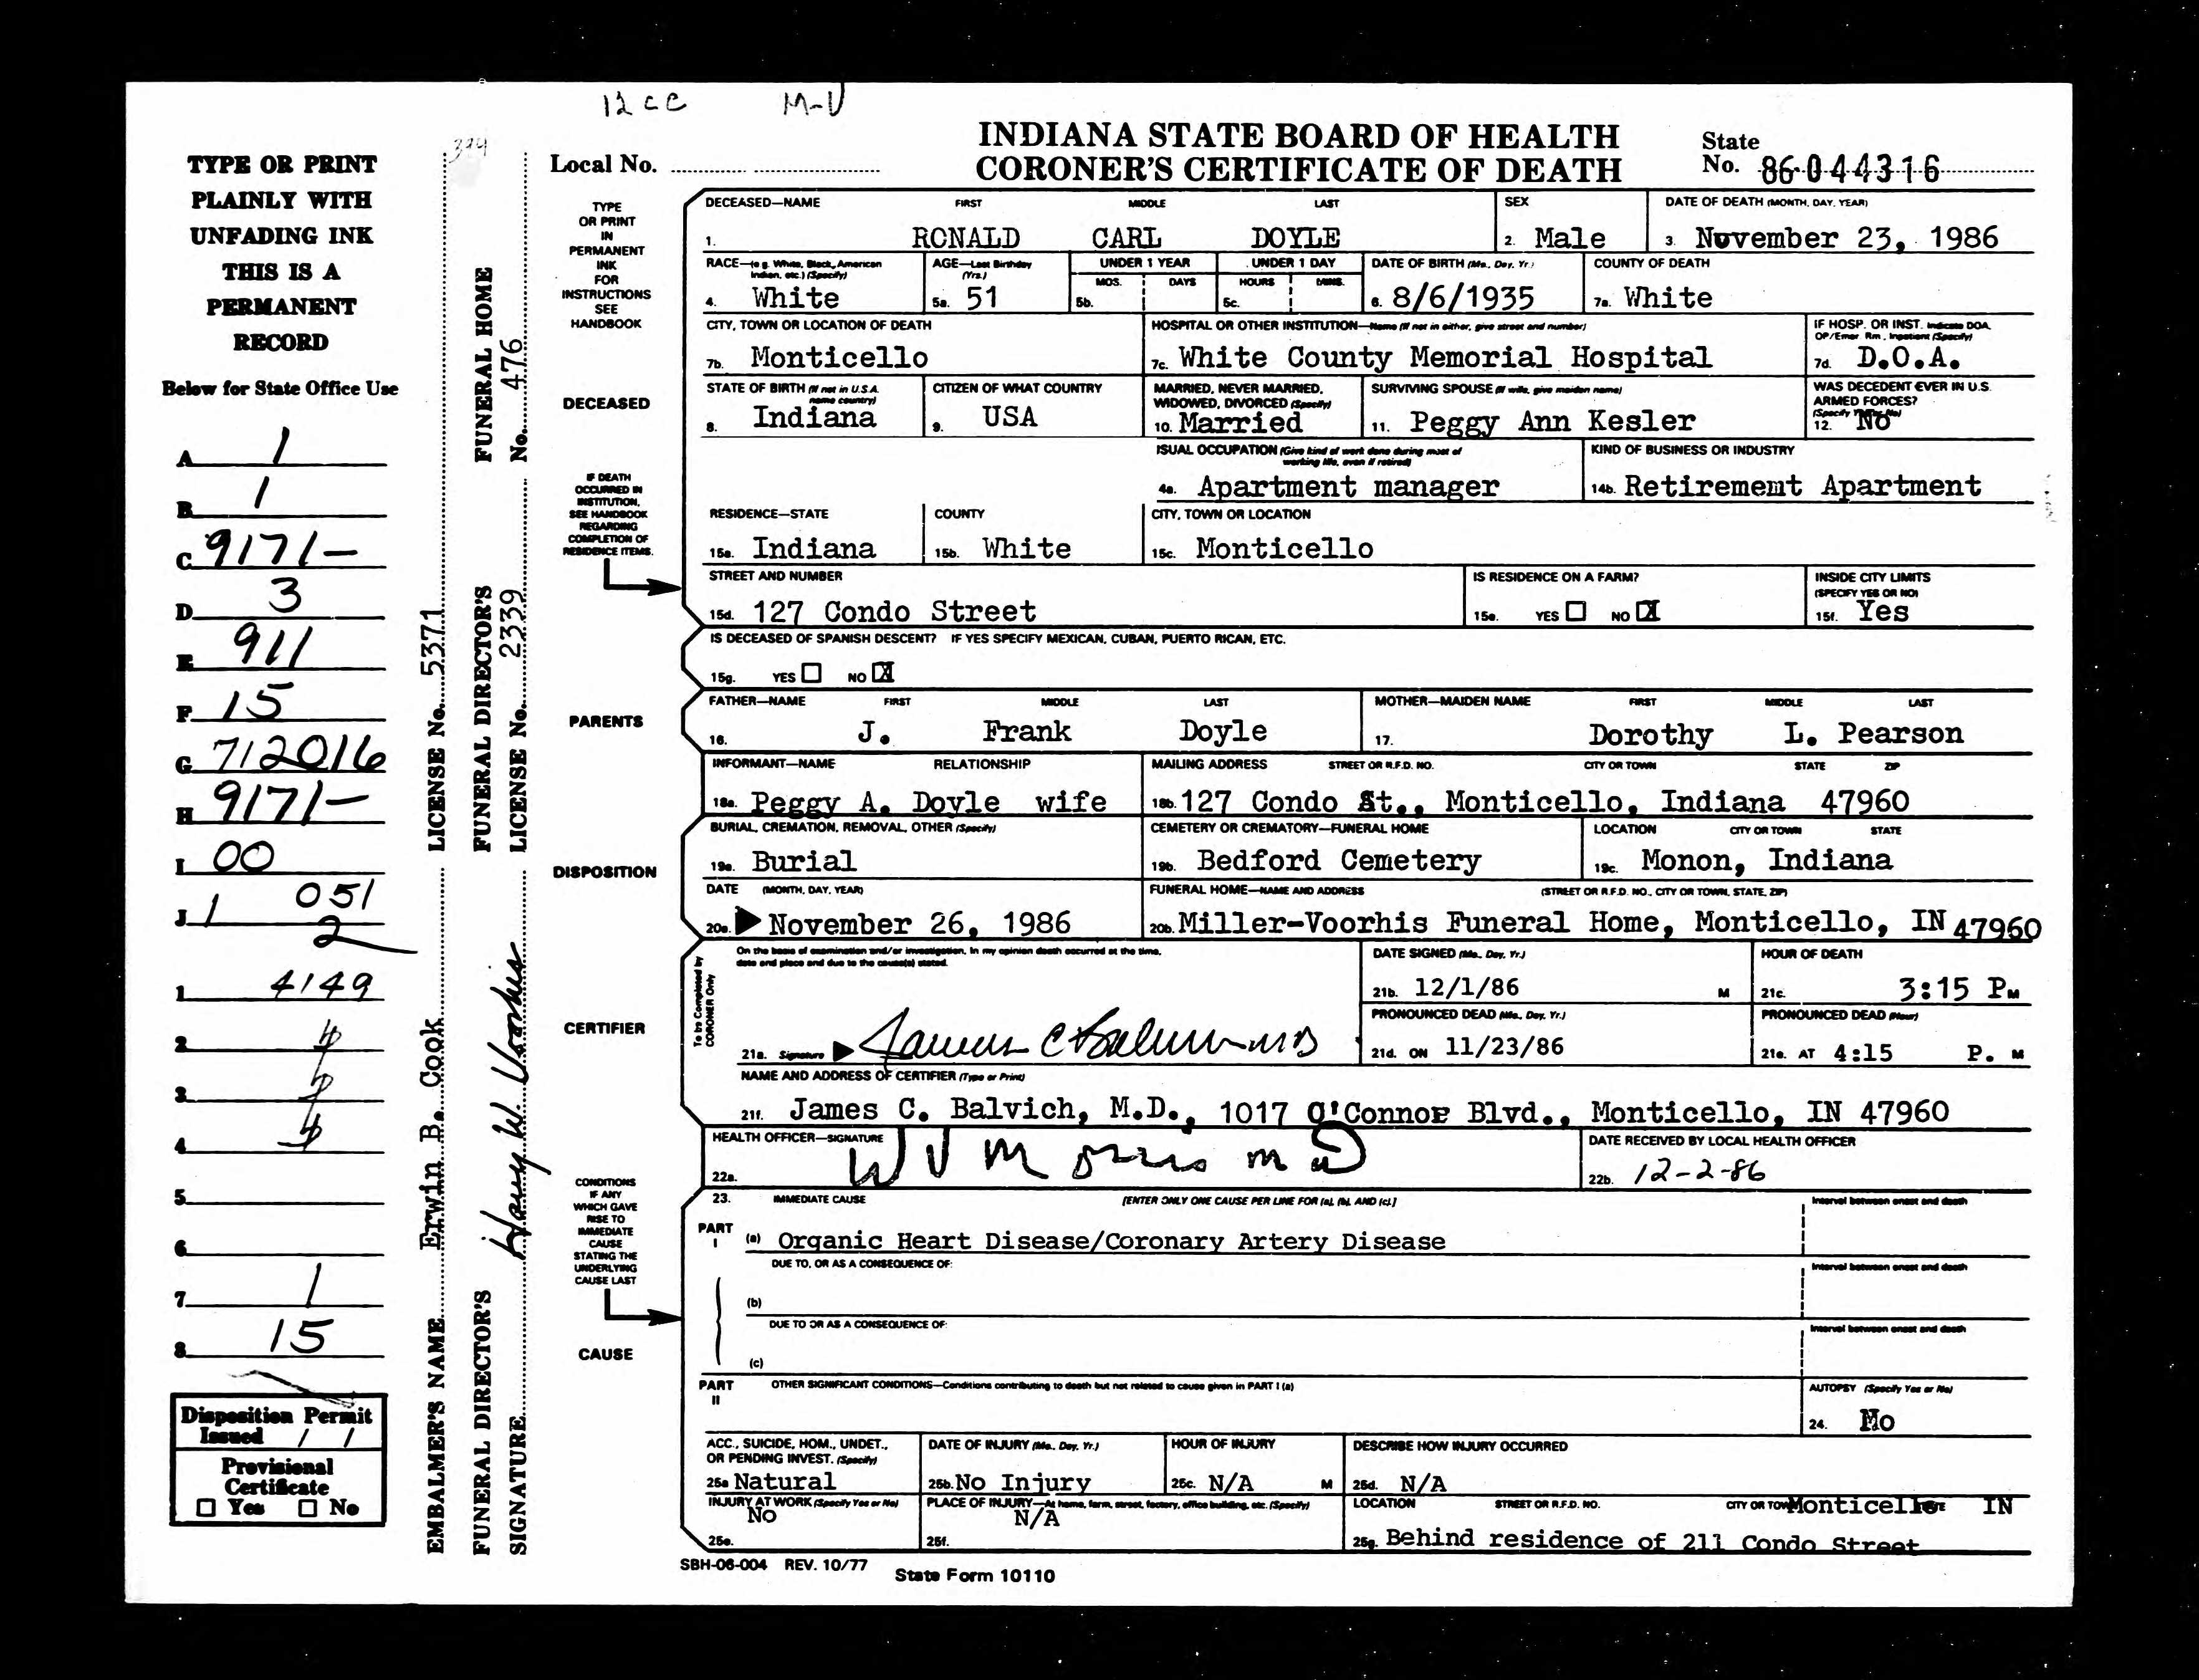 12 CC M-V
394
INDIANA STATE BOARD OF HEALTH
CORONER'S CERTIFICATE OF DEATH
Local No.
State
No. 86-044316
TYPE OR PRINT
PLAINLY WITH
UNFADING INK
THIS IS A
PERMANENT
RECORD
Below for State Office Use
A 1
B 1
C 9171-
D 3
E 911
F 15
G 712016
H 9171-
I 00
J 1 051
2
1 4149
2
3
4
5
6
7 1
8 15
Disposition Permit
Issued / /
Provisional
Certificate
☐ Yes ☐ No
EMBALMER'S NAME Erwin B. Cook LICENSE No. 5371
FUNERAL DIRECTOR'S FUNERAL DIRECTOR'S FUNERAL HOME
SIGNATURE Harry W. Voorhis LICENSE No. 2339 No. 476
TYPE
OR PRINT
IN
PERMANENT
INK
FOR
INSTRUCTIONS
SEE
HANDBOOK
DECEASED
IF DEATH
OCCURRED IN
INSTITUTION,
SEE HANDBOOK
REGARDING
COMPLETION OF
RESIDENCE ITEMS.
PARENTS
DISPOSITION
CERTIFIER
CONDITIONS
IF ANY
WHICH GAVE
RISE TO
IMMEDIATE
CAUSE
STATING THE
UNDERLYING
CAUSE LAST
CAUSE
DECEASED—NAME FIRST MIDDLE LAST SEX DATE OF DEATH (MONTH, DAY, YEAR)
1. RONALD CARL DOYLE 2. Male 3. November 23, 1986
RACE—(e.g. White, Black, American Indian, etc.) (Specify) AGE—Last Birthday (Yrs.) UNDER 1 YEAR UNDER 1 DAY DATE OF BIRTH (Mo., Day, Yr.) COUNTY OF DEATH
MOS. DAYS HOURS MINS.
4. White 5a. 51 5b. 5c. 6. 8/6/1935 7a. White
CITY, TOWN OR LOCATION OF DEATH HOSPITAL OR OTHER INSTITUTION—Name (If not in either, give street and number) IF HOSP. OR INST. Indicate DOA, OP/Emer. Rm., Inpatient (Specify)
7b. Monticello 7c. White County Memorial Hospital 7d. D.O.A.
STATE OF BIRTH (If not in U.S.A. name country) CITIZEN OF WHAT COUNTRY MARRIED, NEVER MARRIED, WIDOWED, DIVORCED (Specify) SURVIVING SPOUSE (If wife, give maiden name) WAS DECEDENT EVER IN U.S. ARMED FORCES? (Specify Yes or No)
8. Indiana 9. USA 10. Married 11. Peggy Ann Kesler 12. No
ISUAL OCCUPATION (Give kind of work done during most of working life, even if retired) KIND OF BUSINESS OR INDUSTRY
4a. Apartment manager 14b. Retirement Apartment
RESIDENCE—STATE COUNTY CITY, TOWN OR LOCATION
15a. Indiana 15b. White 15c. Monticello
STREET AND NUMBER IS RESIDENCE ON A FARM? INSIDE CITY LIMITS (SPECIFY YES OR NO)
15d. 127 Condo Street 15e. YES ☐ NO ☒ 15f. Yes
IS DECEASED OF SPANISH DESCENT? IF YES SPECIFY MEXICAN, CUBAN, PUERTO RICAN, ETC.
15g. YES ☐ NO ☒
FATHER—NAME FIRST MIDDLE LAST MOTHER—MAIDEN NAME FIRST MIDDLE LAST
16. J. Frank Doyle 17. Dorothy L. Pearson
INFORMANT—NAME RELATIONSHIP MAILING ADDRESS STREET OR R.F.D. NO. CITY OR TOWN STATE ZIP
18a. Peggy A. Doyle wife 18b. 127 Condo St., Monticello, Indiana 47960
BURIAL, CREMATION, REMOVAL, OTHER (Specify) CEMETERY OR CREMATORY—FUNERAL HOME LOCATION CITY OR TOWN STATE
19a. Burial 19b. Bedford Cemetery 19c. Monon, Indiana
DATE (MONTH, DAY, YEAR) FUNERAL HOME—NAME AND ADDRESS (STREET OR R.F.D. NO., CITY OR TOWN, STATE, ZIP)
20a. November 26, 1986 20b. Miller-Voorhis Funeral Home, Monticello, IN 47960
To be Completed by CORONER Only
On the basis of examination and/or investigation, in my opinion death occurred at the time, date and place and due to the cause(s) stated. DATE SIGNED (Mo., Day, Yr.) HOUR OF DEATH
21b. 12/1/86 M 21c. 3:15 PM
PRONOUNCED DEAD (Mo., Day, Yr.) PRONOUNCED DEAD (Hour)
21a. Signature James C Balvich MD 21d. ON 11/23/86 21e. AT 4:15 P. M
NAME AND ADDRESS OF CERTIFIER (Type or Print)
21f. James C. Balvich, M.D., 1017 O'Connor Blvd., Monticello, IN 47960
HEALTH OFFICER—SIGNATURE DATE RECEIVED BY LOCAL HEALTH OFFICER
22a. W V Morris MD 22b. 12-2-86
23. IMMEDIATE CAUSE [ENTER ONLY ONE CAUSE PER LINE FOR (a), (b), AND (c).] Interval between onset and death
PART I (a) Organic Heart Disease/Coronary Artery Disease
DUE TO, OR AS A CONSEQUENCE OF: Interval between onset and death
(b)
DUE TO OR AS A CONSEQUENCE OF: Interval between onset and death
(c)
PART II OTHER SIGNIFICANT CONDITIONS—Conditions contributing to death but not related to cause given in PART I (a) AUTOPSY (Specify Yes or No)
24. No
ACC., SUICIDE, HOM., UNDET., OR PENDING INVEST. (Specify) DATE OF INJURY (Mo., Day, Yr.) HOUR OF INJURY DESCRIBE HOW INJURY OCCURRED
25a Natural 25b. No Injury 25c. N/A M 25d. N/A
INJURY AT WORK (Specify Yes or No) PLACE OF INJURY—At home, farm, street, factory, office building, etc. (Specify) LOCATION STREET OR R.F.D. NO. CITY OR TOWN Monticello IN
25e. No 25f. N/A 25g. Behind residence of 211 Condo Street
SBH-06-004 REV. 10/77 State Form 10110